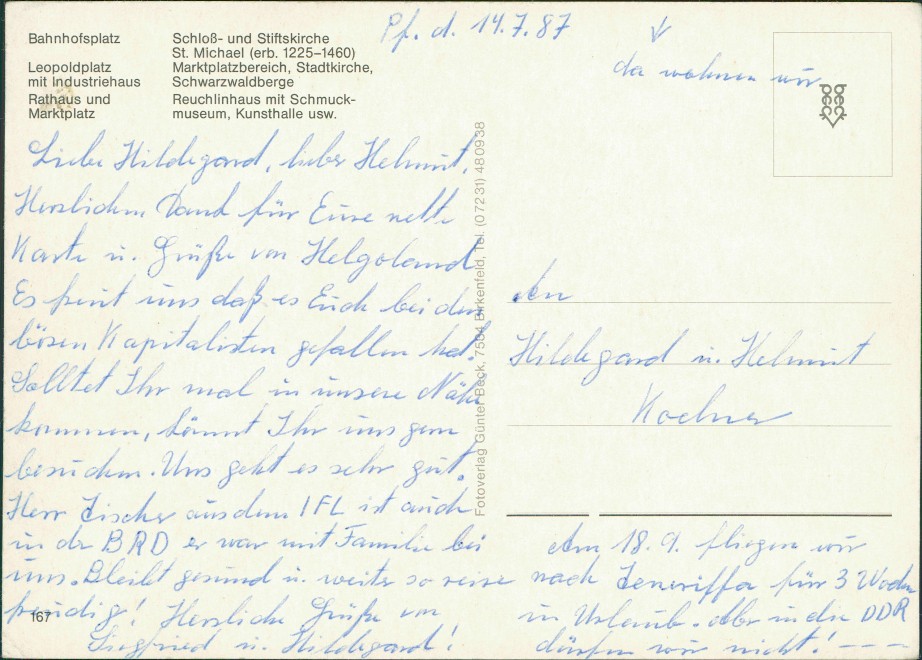 Bahnhofsplatz
Leopoldplatz
mit Industriehaus
Rathaus und
Marktplatz
Schloß- und Stiftskirche
St. Michael (erb. 1225–1460)
Marktplatzbereich, Stadtkirche,
Schwarzwaldberge
Reuchlinhaus mit Schmuck-
museum, Kunsthalle usw.
Pf. d. 14.7.87
da wohnen wir
Liebe Hildegard, lieber Helmut,
Herzlichen Dank für Eure nette
Karte u. Grüße von Helgoland
Es freut uns daß es Euch bei den
bösen Kapitalisten gefallen hat.
Solltet Ihr mal in unsere Nähe
kommen, könnt Ihr uns gern
besuchen. Uns geht es sehr gut.
Herr Zischer aus dem IFL ist auch
in der BRD er war mit Familie bei
uns. Bleibt gesund u. weiter so reise
freudig! Herzliche Grüße von
Siegfried u. Hildegard!
167
Fotoverlag Günter Beck, 7534 Birkenfeld, Tel. (07231) 480938
An
Hildegard u. Helmut
Am 18.9. fliegen wir
nach Teneriffa für 3 Wochen
in Urlaub. Aber in die DDR
dürfen wir nicht! – – –